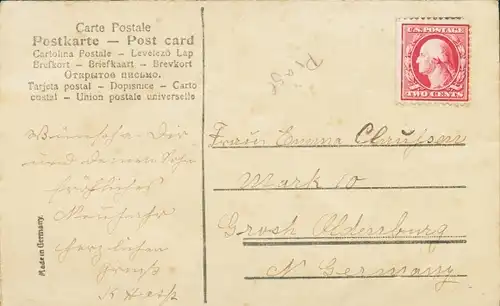 Carte Postale
Postkarte — Post card
Cartolina Postale — Levelező Lap
Brefkort — Briefkaart — Brevkort
Открытое письмо.
Tarjeta postal — Dopisnice — Carto
postal — Union postale universelle
U.S. POSTAGE
TWO CENTS
Wünsche Dir
und deinem Sohn
fröhliches
Neujahr
herzlichen
Gruß
Frau Emma Claussen
Mark 10
Grosh Oldenburg
N Germany
Made in Germany.